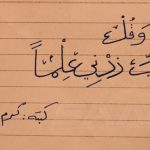 وَقُلْ
رَبِّ زِدْنِي عِلْمًا
كتبه: كرم